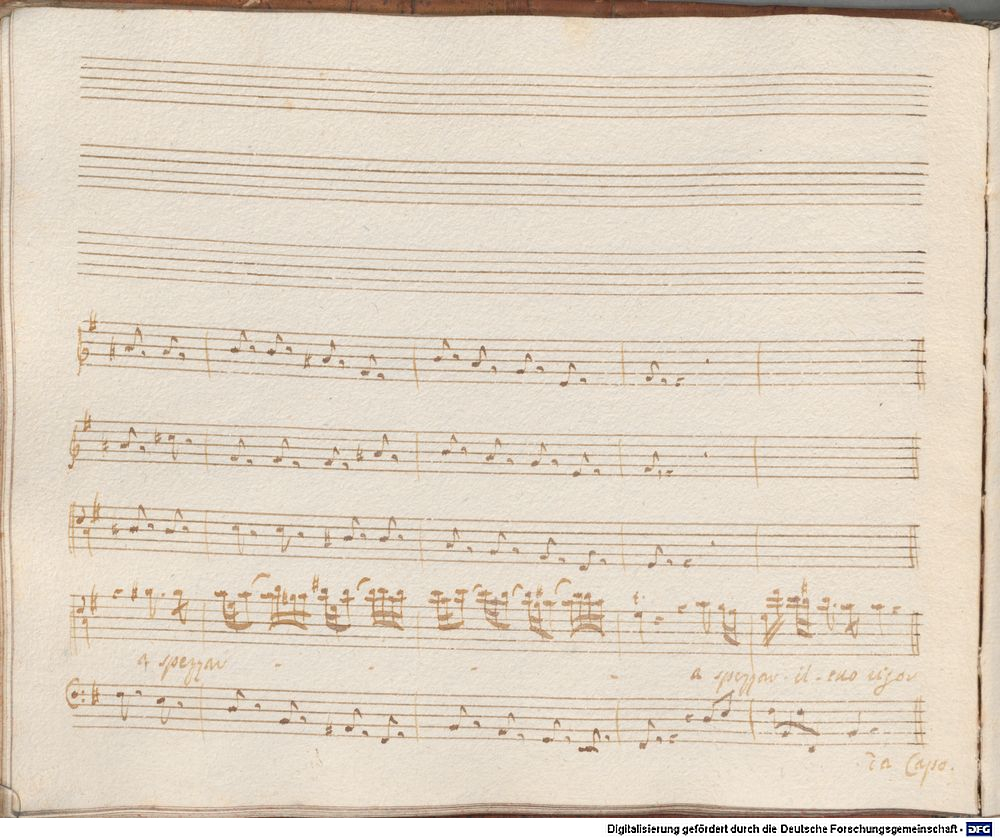 a spezzar - - - - a spezzar - il - suo rigor
Da Capo.
Digitalisierung gefördert durch die Deutsche Forschungsgemeinschaft - DFG